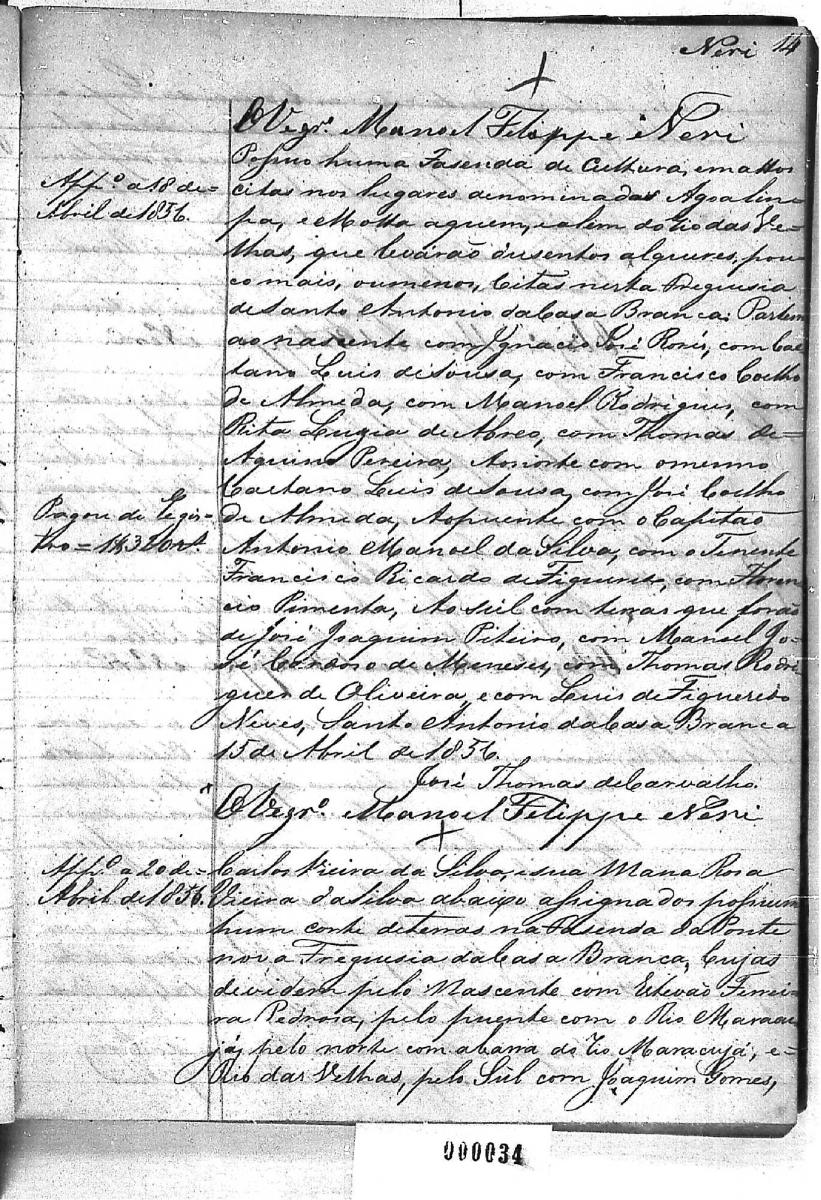 Neri 14
O Vegr.º Manoel Filippe Neri
App.º a 18 de=
Abril de 1856.
Possuo huma Fasenda de Cultura, emattos
citas nos lugares denominadas Agoa lim=
pa, e Motta aquem, e alem do Rio das Ve=
lhas, que levárão dusentos alqueres, pou=
co mais, ou menos, Citas nesta Freguesia
de Santo Antonio da Casa Branca: Partem
ao nascente com Ignacio José Roris, com Cae=
tano Luis de Sousa, com Francisco Coelho
de Almeda, com Manoel Rodrigues, com
Rita Luzia de Abreo, com Thomas de=
Aquino Pereira, Ao norte com o mesmo
Caetano Luis de Sousa, com José Coelho
Pagou de Regis=
tro = 1$320 rs.
de Almeda, Ao puente com o Capitão
Antonio Manoel da Silva, com o Tenente
Francisco Ricardo de Figueredo, com Floren=
cio Pimenta, Ao sul com terras que forão
de José Joaquim Piteiro, com Manoel Jo=
sé Cardoso de Meneses, com Thomas Rodri=
gues de Oliveira, e com Luis de Figueredo
Neves, Santo Antonio da Casa Branca
15 de Abril de 1856.
José Thomas de Carvalho.
O Vegr.º Manoel Filippe Neri
App.º a 20 de=
Abril de 1856.
Carlos Vieira da Silva, e sua Mana Rosa
Vieira da Silva abaixo assignados possuem
hum corte de terras na Fasenda da Ponte
nova Freguesia da Casa Branca, Cujas
devidem pelo Nascente com Estevão Ferrei=
ra Pedrosa, pelo puente com o Rio Maracu=
já, pelo norte com abarra do Rio Maracujá, e=
Rio das Velhas, pelo Sul com Joaquim Gomes,
000034